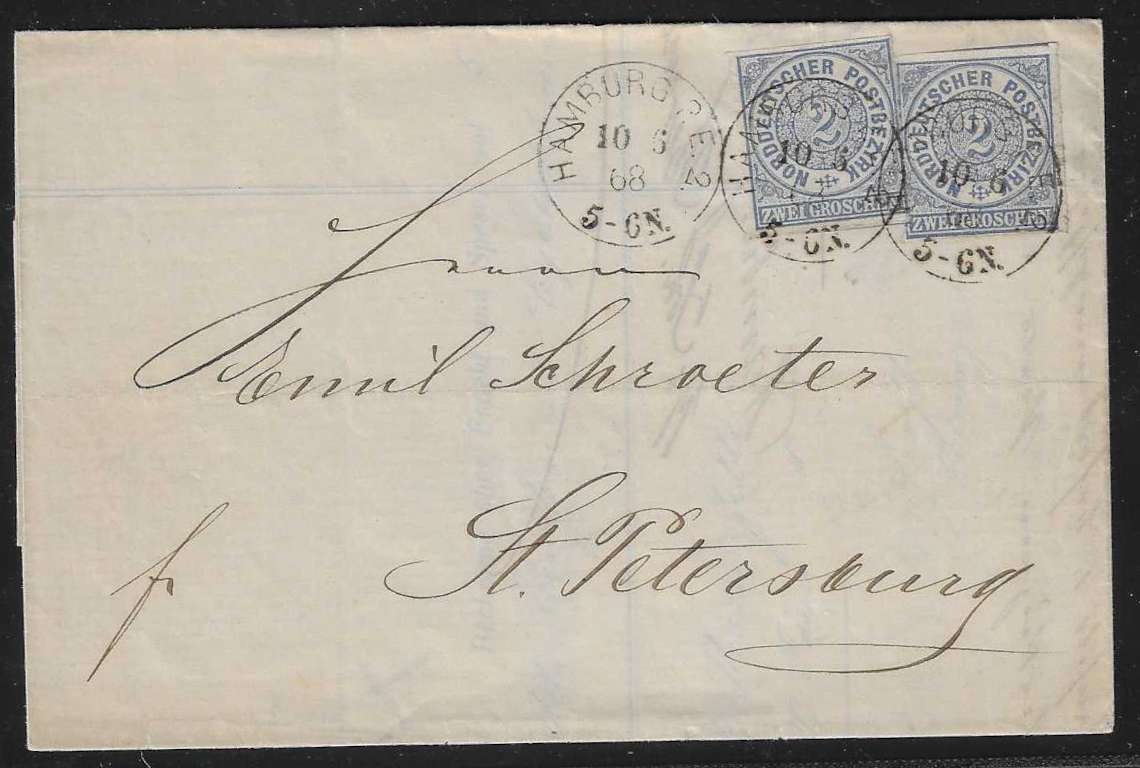 HAMBURG P.E. 2
10 6
68
5-6N.
NORDDEUTSCHER POSTBEZIRK
2
ZWEI GROSCHEN
10 6
5-6N.
NORDDEUTSCHER POSTBEZIRK
2
ZWEI GROSCHEN
10 6
5-6N.
Herrn
Emil Schroeter
St. Petersburg
fr